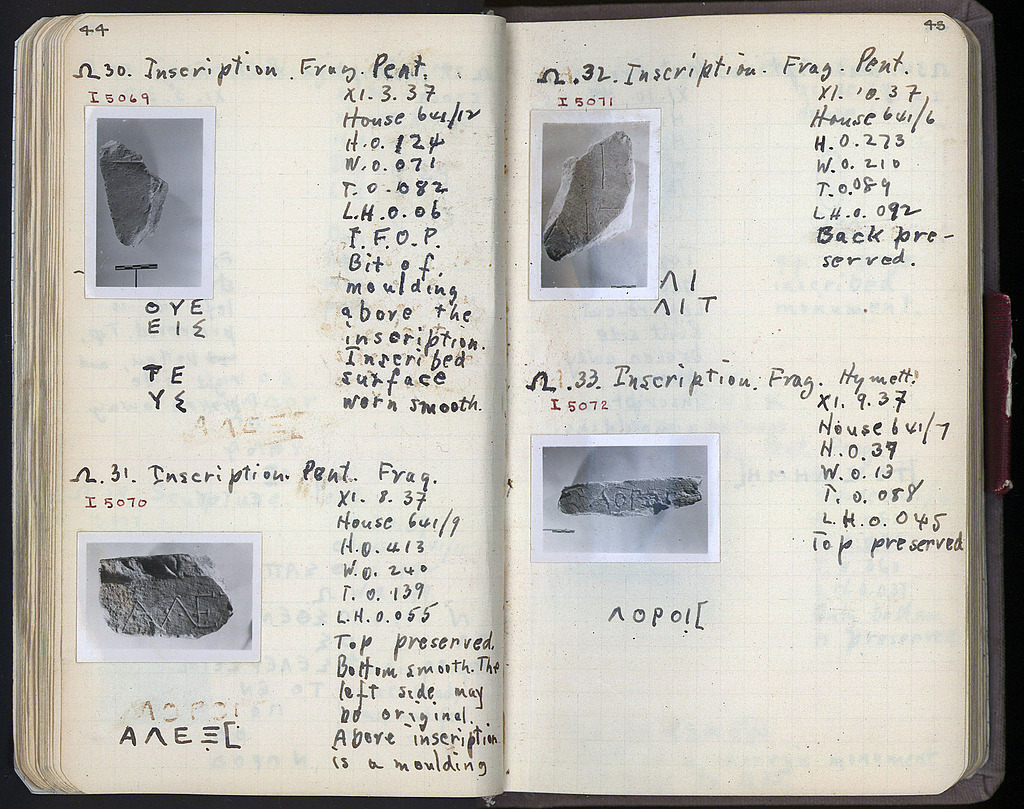 44
Ω 30. Inscription. Frag. Pent.
I 5069
XI. 3. 37
House 641/12
H. 0. 124
W. 0. 071
T. 0. 082
L.H. 0. 06
I. F. O. P.
Bit of
moulding
above the
inscription.
Inscribed
surface
worn smooth.
ΟΥΕ
ΕΙΣ
ΤΕ
ΥΣ
ΑΛΕΞ[
Ω. 31. Inscription. Pent. Frag.
I 5070
XI. 8. 37
House 641/9
H. 0. 413
W. 0. 240
T. 0. 139
L.H. 0. 055
Top preserved.
Bottom smooth. The
left side may
be original.
Above inscription
is a moulding
ΛΟΡΟΙ
ΑΛΕΞ[
45
Ω. 32. Inscription. Frag. Pent.
I 5071
XI. 10. 37
House 641/6
H. 0. 273
W. 0. 210
T. 0. 089
L.H. 0. 092
Back pre-
served.
ΛΙ
ΛΙΤ
Ω. 33. Inscription. Frag. Hymett.
I 5072
XI. 9. 37
House 641/7
H. 0. 39
W. 0. 13
T. 0. 088
L.H. 0. 045
Top preserved
ΛΟΡΟΙ[